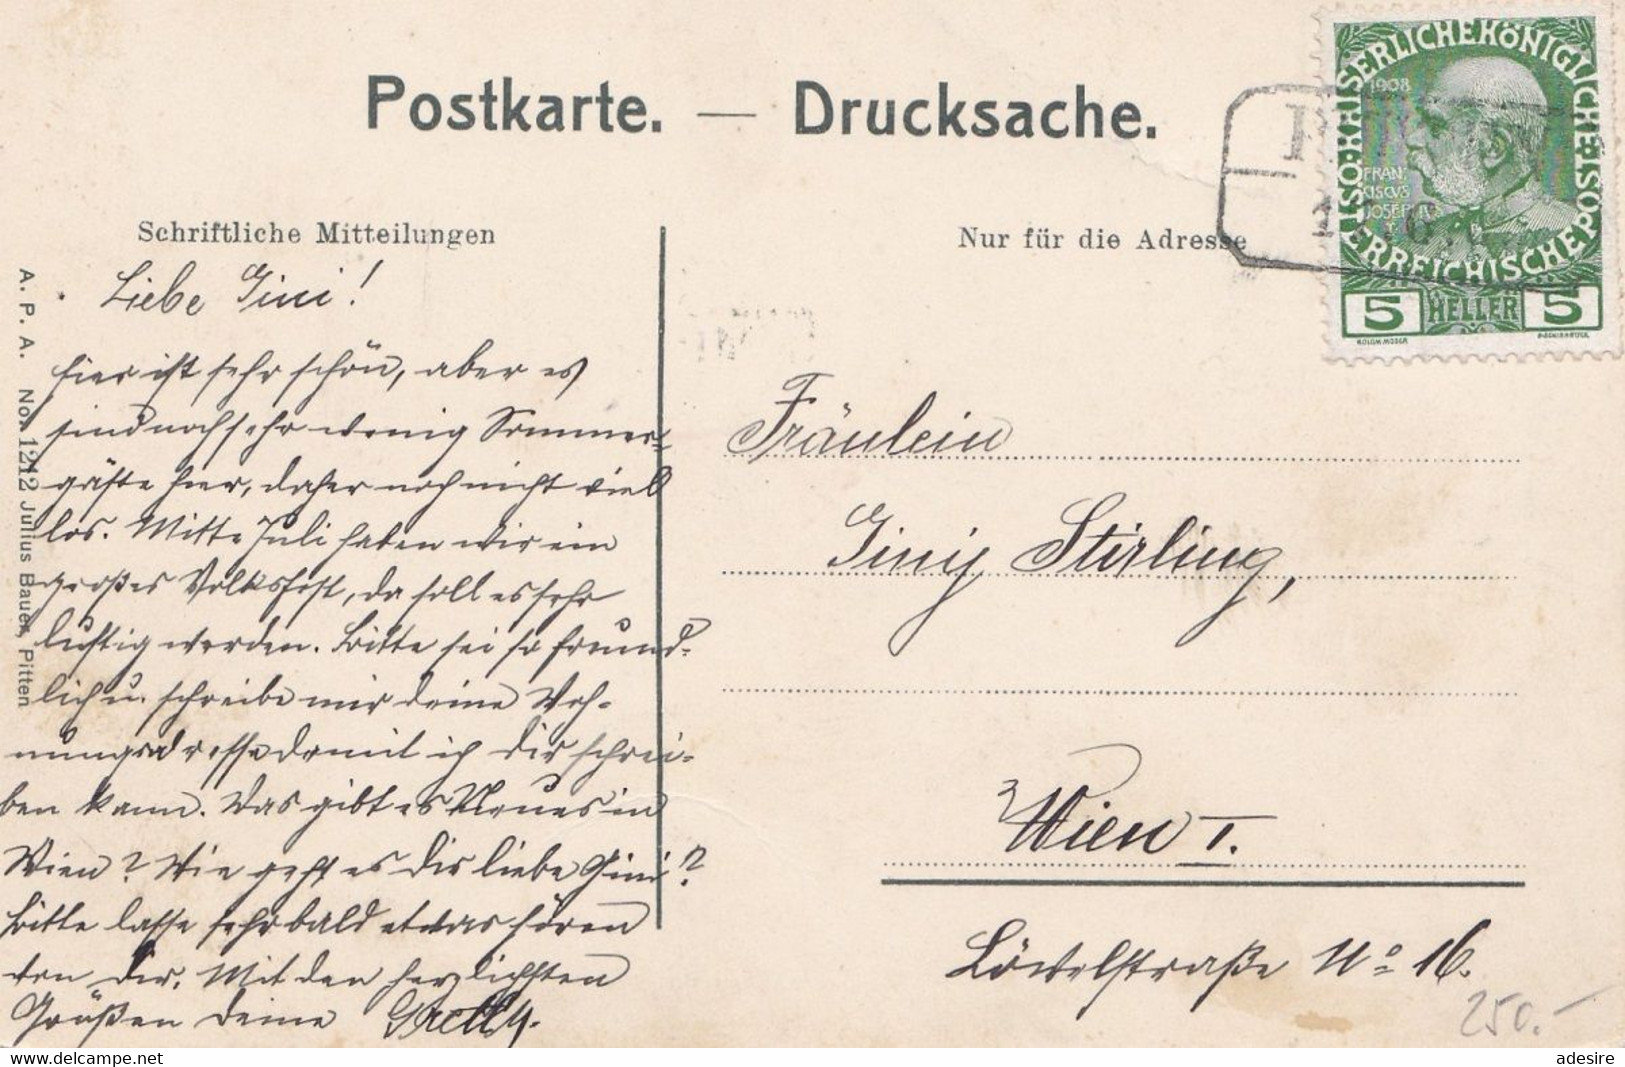 Postkarte. — Drucksache.
Schriftliche Mitteilungen
Nur für die Adresse
KAISERLICHE KÖNIGLICHE ÖSTERREICHISCHE POST
1908
FRAN
CISCVS
JOSEPH I
5 HELLER 5
KOLOM. MOSER
A. P. A. No. 1212 Julius Bauer, Pitten
Liebe Gini!
hier ist sehr schön, aber es
sind noch sehr wenig Sommer=
gäste hier, daher noch nicht viel
los. Mitte Juli haben wir ein
großes Volksfest, da soll es sehr
lustig werden. Bitte sei so freund-
lich u. schreibe mir deine Woh-
nungsadresse damit ich dir schrei-
ben kann. Was gibt es Neues in
Wien? Wie geht es dir liebe Gini?
Bitte lasse sehr bald etwas hören
von dir. Mit den herzlichsten
Grüßen deine Gretly.
Fräulein
Giny Stirling,
Wien I.
Löwelstraße No 16.
250.-
adesire